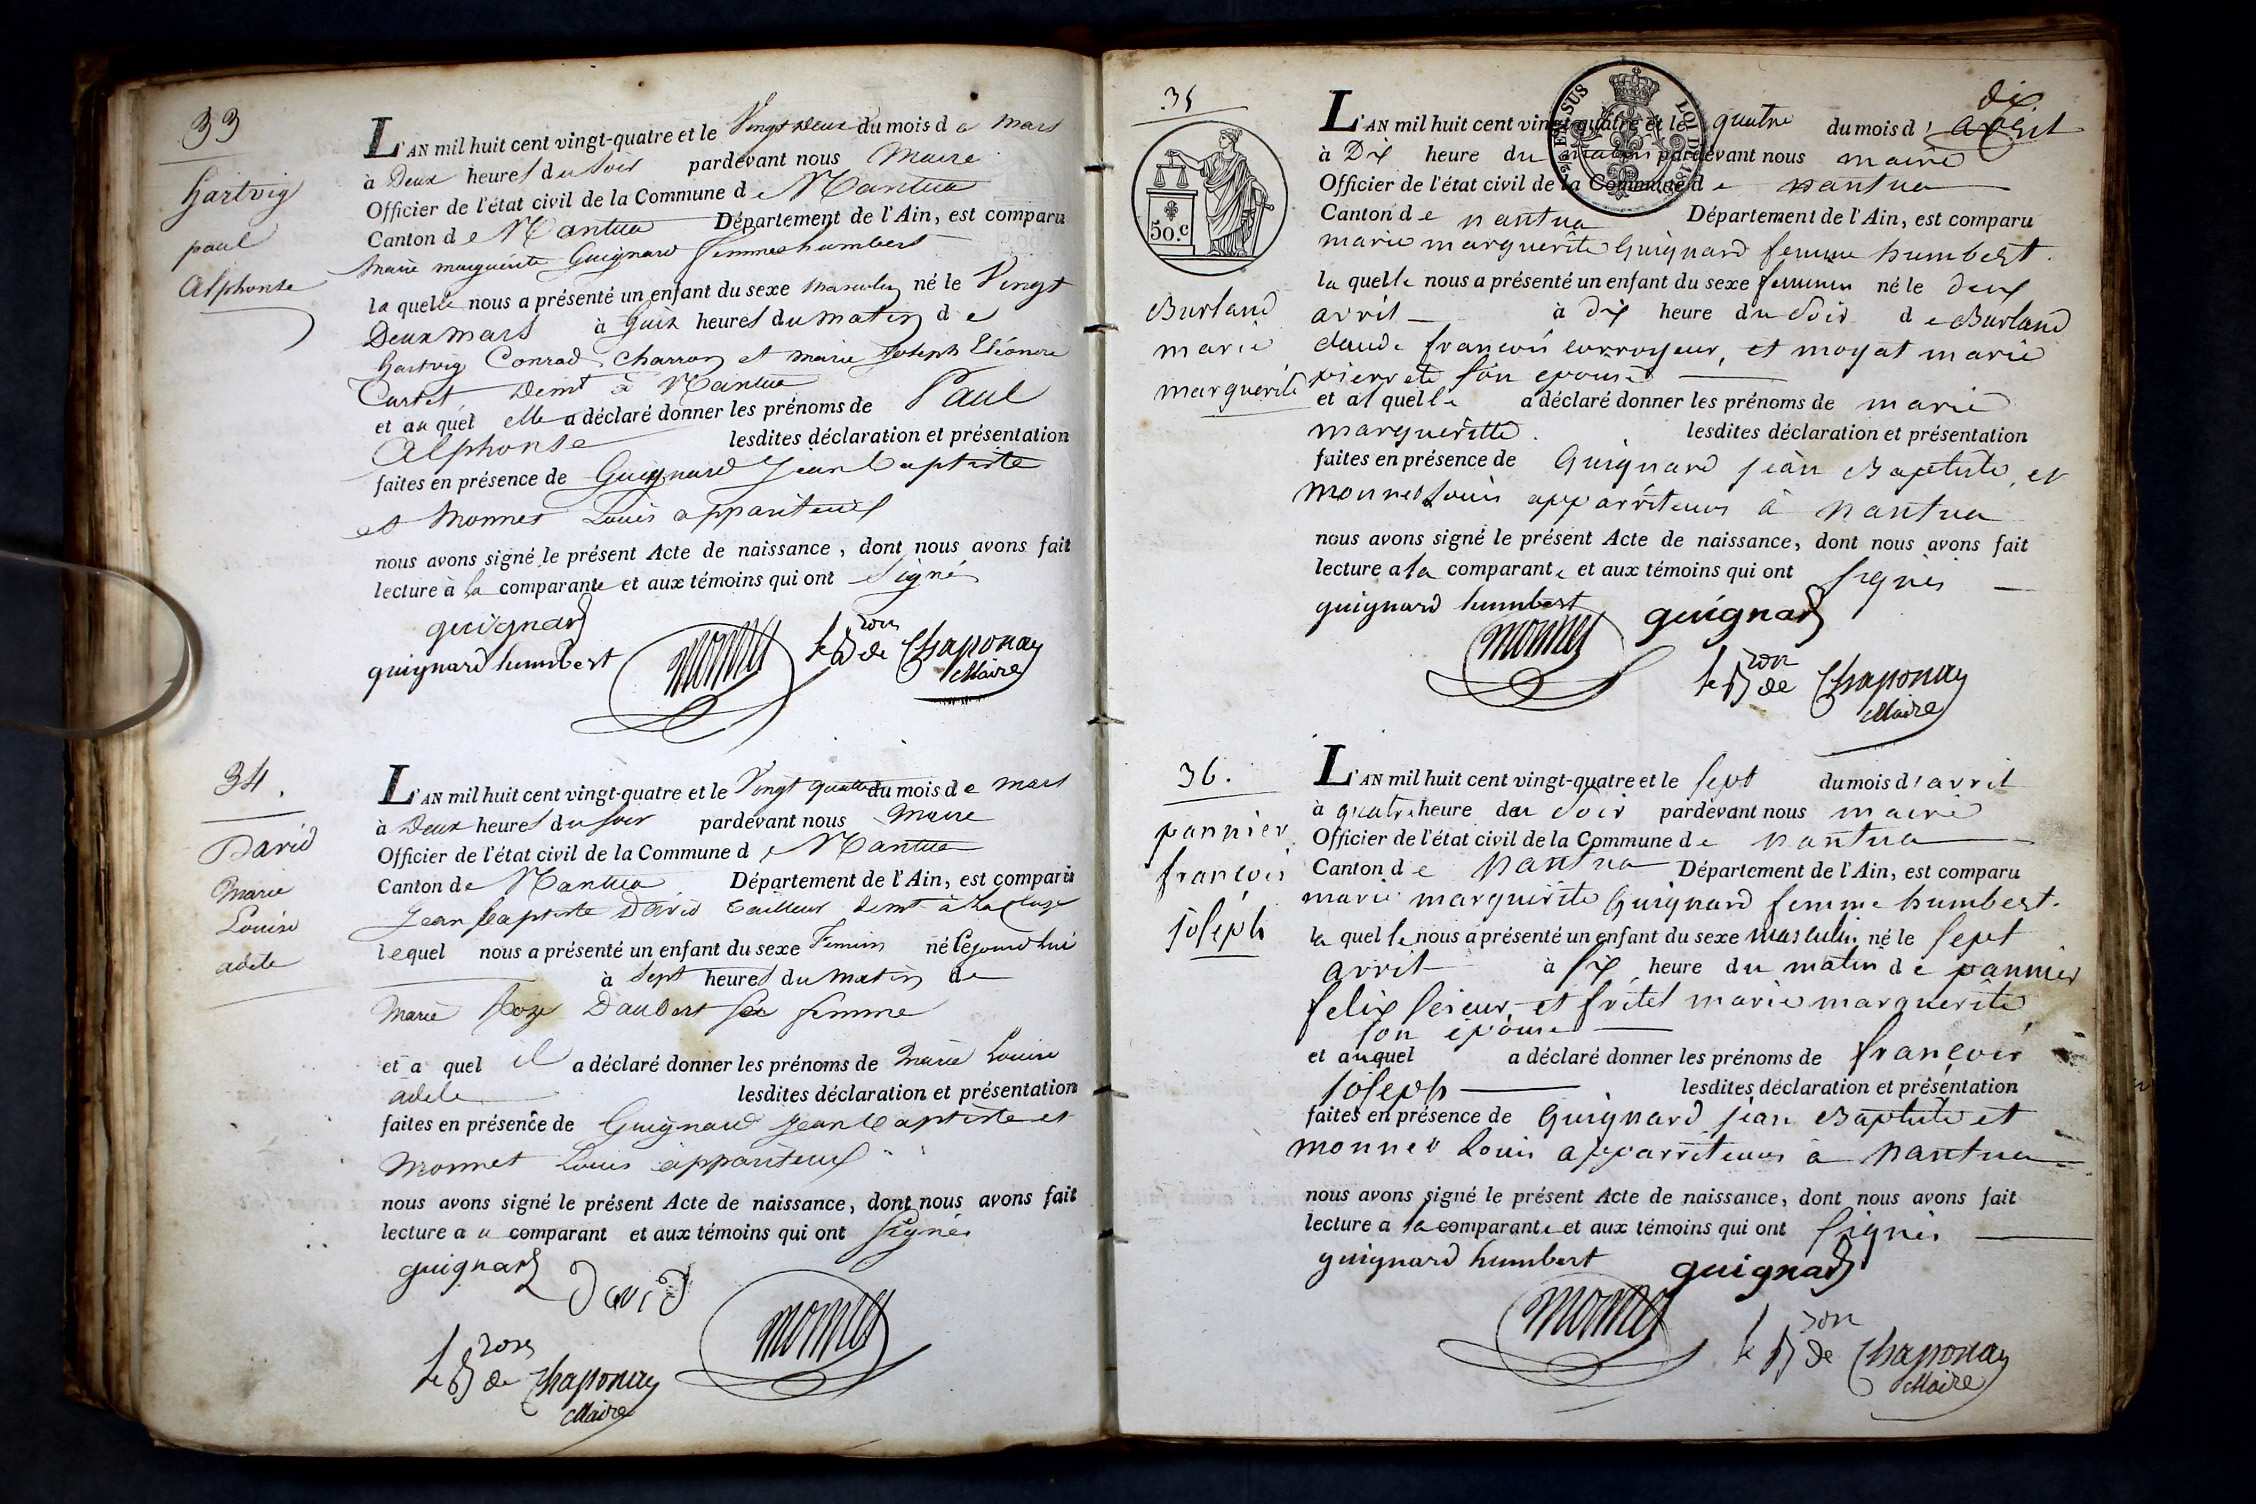 33
hartvig
paul
Alphonse
L'AN mil huit cent vingt-quatre et le Vingt Deux du mois de mars
à Deux heures du soir pardevant nous Maire
Officier de l'état civil de la Commune de Nantua
Canton de Nantua Département de l'Ain, est comparu
Marie marguerite Guignard femme humbert
la quelle nous a présenté un enfant du sexe masculin né le Vingt
Deux mars à huit heures du matin de
hartvig Conrad, Charron et marie Joseph Eléonore
Curtet Demt à Nantua
et au quel elle a déclaré donner les prénoms de Paul
Alphonse lesdites déclaration et présentation
faites en présence de Guignard Jean baptiste
et Monnet Louis appariteurs
nous avons signé le présent Acte de naissance, dont nous avons fait
lecture à la comparante et aux témoins qui ont signés
guignard
guignard humbert monnet le Bon de Chaponay
Maire
34.
David
Marie
Louise
adele
L'AN mil huit cent vingt-quatre et le Vingt quatre du mois de mars
à Deux heures du soir pardevant nous Maire
Officier de l'état civil de la Commune de Nantua
Canton de Nantua Département de l'Ain, est comparu
Jean baptiste David tailleur demt à La Cluse
lequel nous a présenté un enfant du sexe Feminin né Cejourd'hui
à sept heures du matin de
Marie Roze Daubert sa femme
et a quel il a déclaré donner les prénoms de Marie Louise
adele lesdites déclaration et présentation
faites en présence de Guignard Jean baptiste et
Monnet Louis appariteurs
nous avons signé le présent Acte de naissance, dont nous avons fait
lecture a u comparant et aux témoins qui ont signés
guignard David monnet
le Bon de Chaponay
Maire
35
50.c
Burland
marie
marguerite
dix.
L'AN mil huit cent vingt-quatre et le quatre du mois d'avril
à Dix heure du matin pardevant nous maire
Officier de l'état civil de la Commune de nantua
Canton de nantua Département de l'Ain, est comparu
marie marguerite Guignard femme humbert.
la quelle nous a présenté un enfant du sexe feminin né le deux
avril à dix heure du soir de Burland
claude françois corroyeur, et moyat marie
pierrete son epouse
et a l quelle a déclaré donner les prénoms de marie
margueritte. lesdites déclaration et présentation
faites en présence de Guignard jean Baptiste, et
monnet Louis apparriteurs à nantua
nous avons signé le présent Acte de naissance, dont nous avons fait
lecture a la comparante et aux témoins qui ont signés
guignard humbert guignard
monnet
le Bon de Chaponay
Maire
36.
pannier
françois
joseph
L'AN mil huit cent vingt-quatre et le sept du mois d'avril
à quatre heure du soir pardevant nous maire
Officier de l'état civil de la Commune de nantua
Canton de nantua Département de l'Ain, est comparu
marie marguerite Guignard femme humbert.
la quelle nous a présenté un enfant du sexe masculin né le sept
avril à six heure du matin de pannier
felix scieur, et fritel marie marguerite
son épouse
et auquel a déclaré donner les prénoms de françois
joseph lesdites déclaration et présentation
faites en présence de Guignard jean Baptiste et
monnet Louis apparriteurs à nantua
nous avons signé le présent Acte de naissance, dont nous avons fait
lecture a la comparante et aux témoins qui ont signés
guignard humbert guignard
monnet
le Bon de Chaponay
Maire